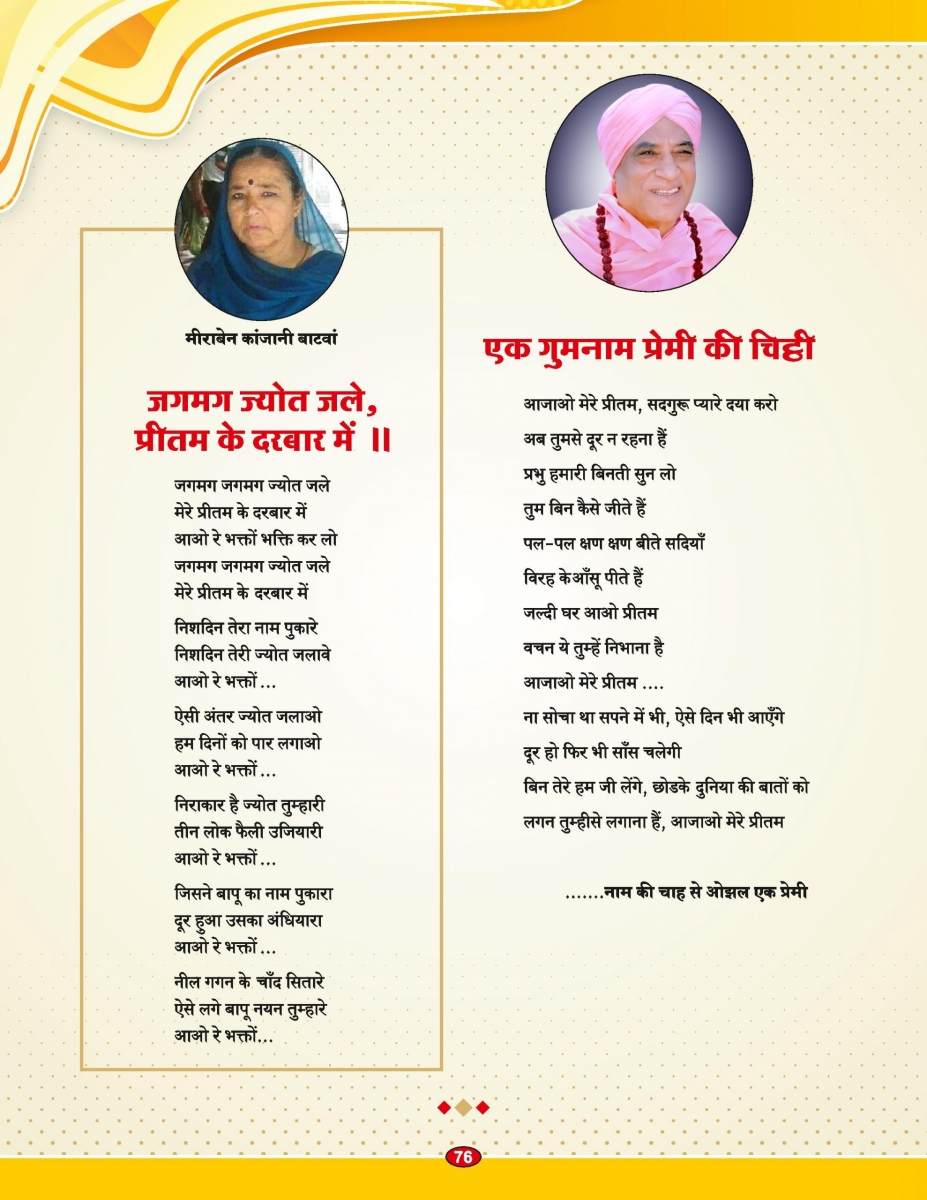 मीराबेन कांजानी बाटवां
जगमग ज्योत जले,
प्रीतम के दरबार में ॥
जगमग जगमग ज्योत जले
मेरे प्रीतम के दरबार में
आओ रे भक्तों भक्ति कर लो
जगमग जगमग ज्योत जले
मेरे प्रीतम के दरबार में
निशदिन तेरा नाम पुकारे
निशदिन तेरी ज्योत जलावे
आओ रे भक्तों ...
ऐसी अंतर ज्योत जलाओ
हम दिनों को पार लगाओ
आओ रे भक्तों ...
निराकार है ज्योत तुम्हारी
तीन लोक फैली उजियारी
आओ रे भक्तों ...
जिसने बापू का नाम पुकारा
दूर हुआ उसका अंधियारा
आओ रे भक्तों ...
नील गगन के चाँद सितारे
ऐसे लगे बापू नयन तुम्हारे
आओ रे भक्तों...
एक गुमनाम प्रेमी की चिट्ठी
आजाओ मेरे प्रीतम, सदगुरू प्यारे दया करो
अब तुमसे दूर न रहना हैं
प्रभु हमारी बिनती सुन लो
तुम बिन कैसे जीते हैं
पल-पल क्षण क्षण बीते सदियाँ
विरह केआँसू पीते हैं
जल्दी घर आओ प्रीतम
वचन ये तुम्हें निभाना है
आजाओ मेरे प्रीतम ....
ना सोचा था सपने में भी, ऐसे दिन भी आएँगे
दूर हो फिर भी साँस चलेगी
बिन तेरे हम जी लेंगे, छोडके दुनिया की बातों को
लगन तुम्हीसे लगाना हैं, आजाओ मेरे प्रीतम
.......नाम की चाह से ओझल एक प्रेमी
76